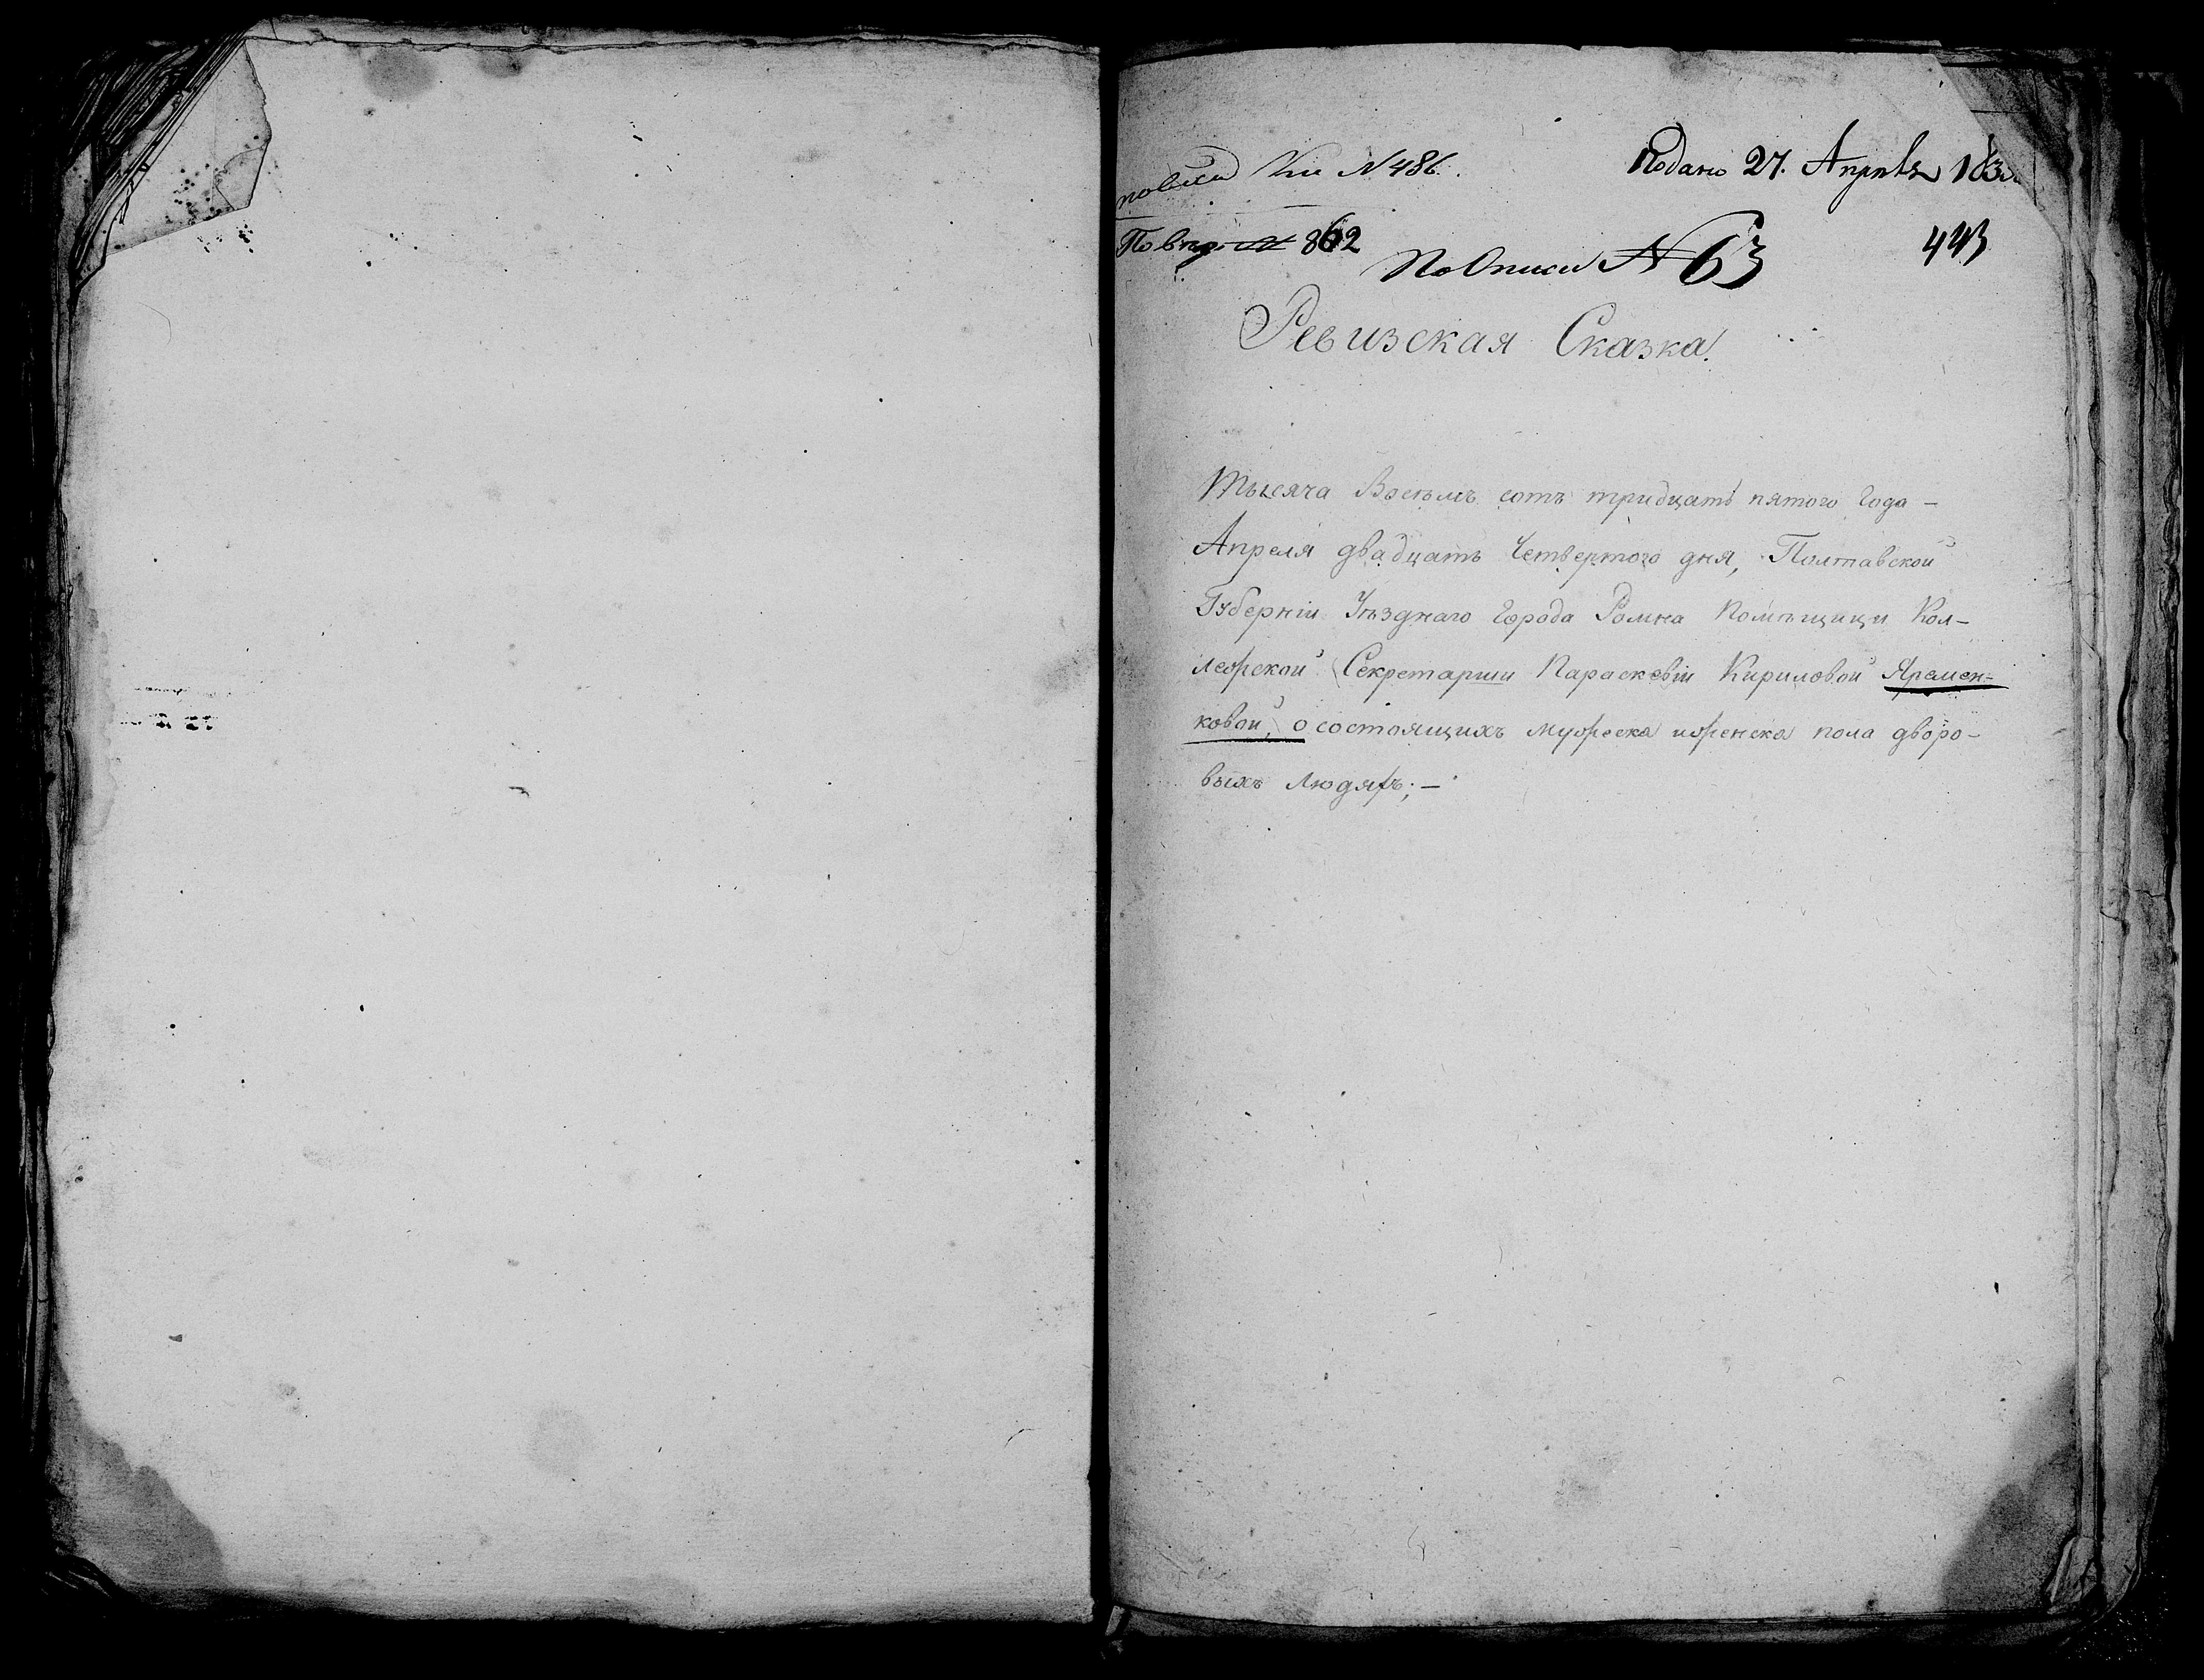 № 486.
Подано 27. Апрѣля 183
862
443
По Описи № 63
Ревизская Сказка.
Тысяча Восемь сотъ тридцать пятого Года –
Апреля двадцать Четвертого дня, Полтавской
Губерніи Уѣзднаго Города Ромна Помѣщици Кол-
лежской Секретарши Параскевіи Кириловой Яремен-
ковой, о состоящихъ мужеска иженска пола дворо-
выхъ Людяхъ; –